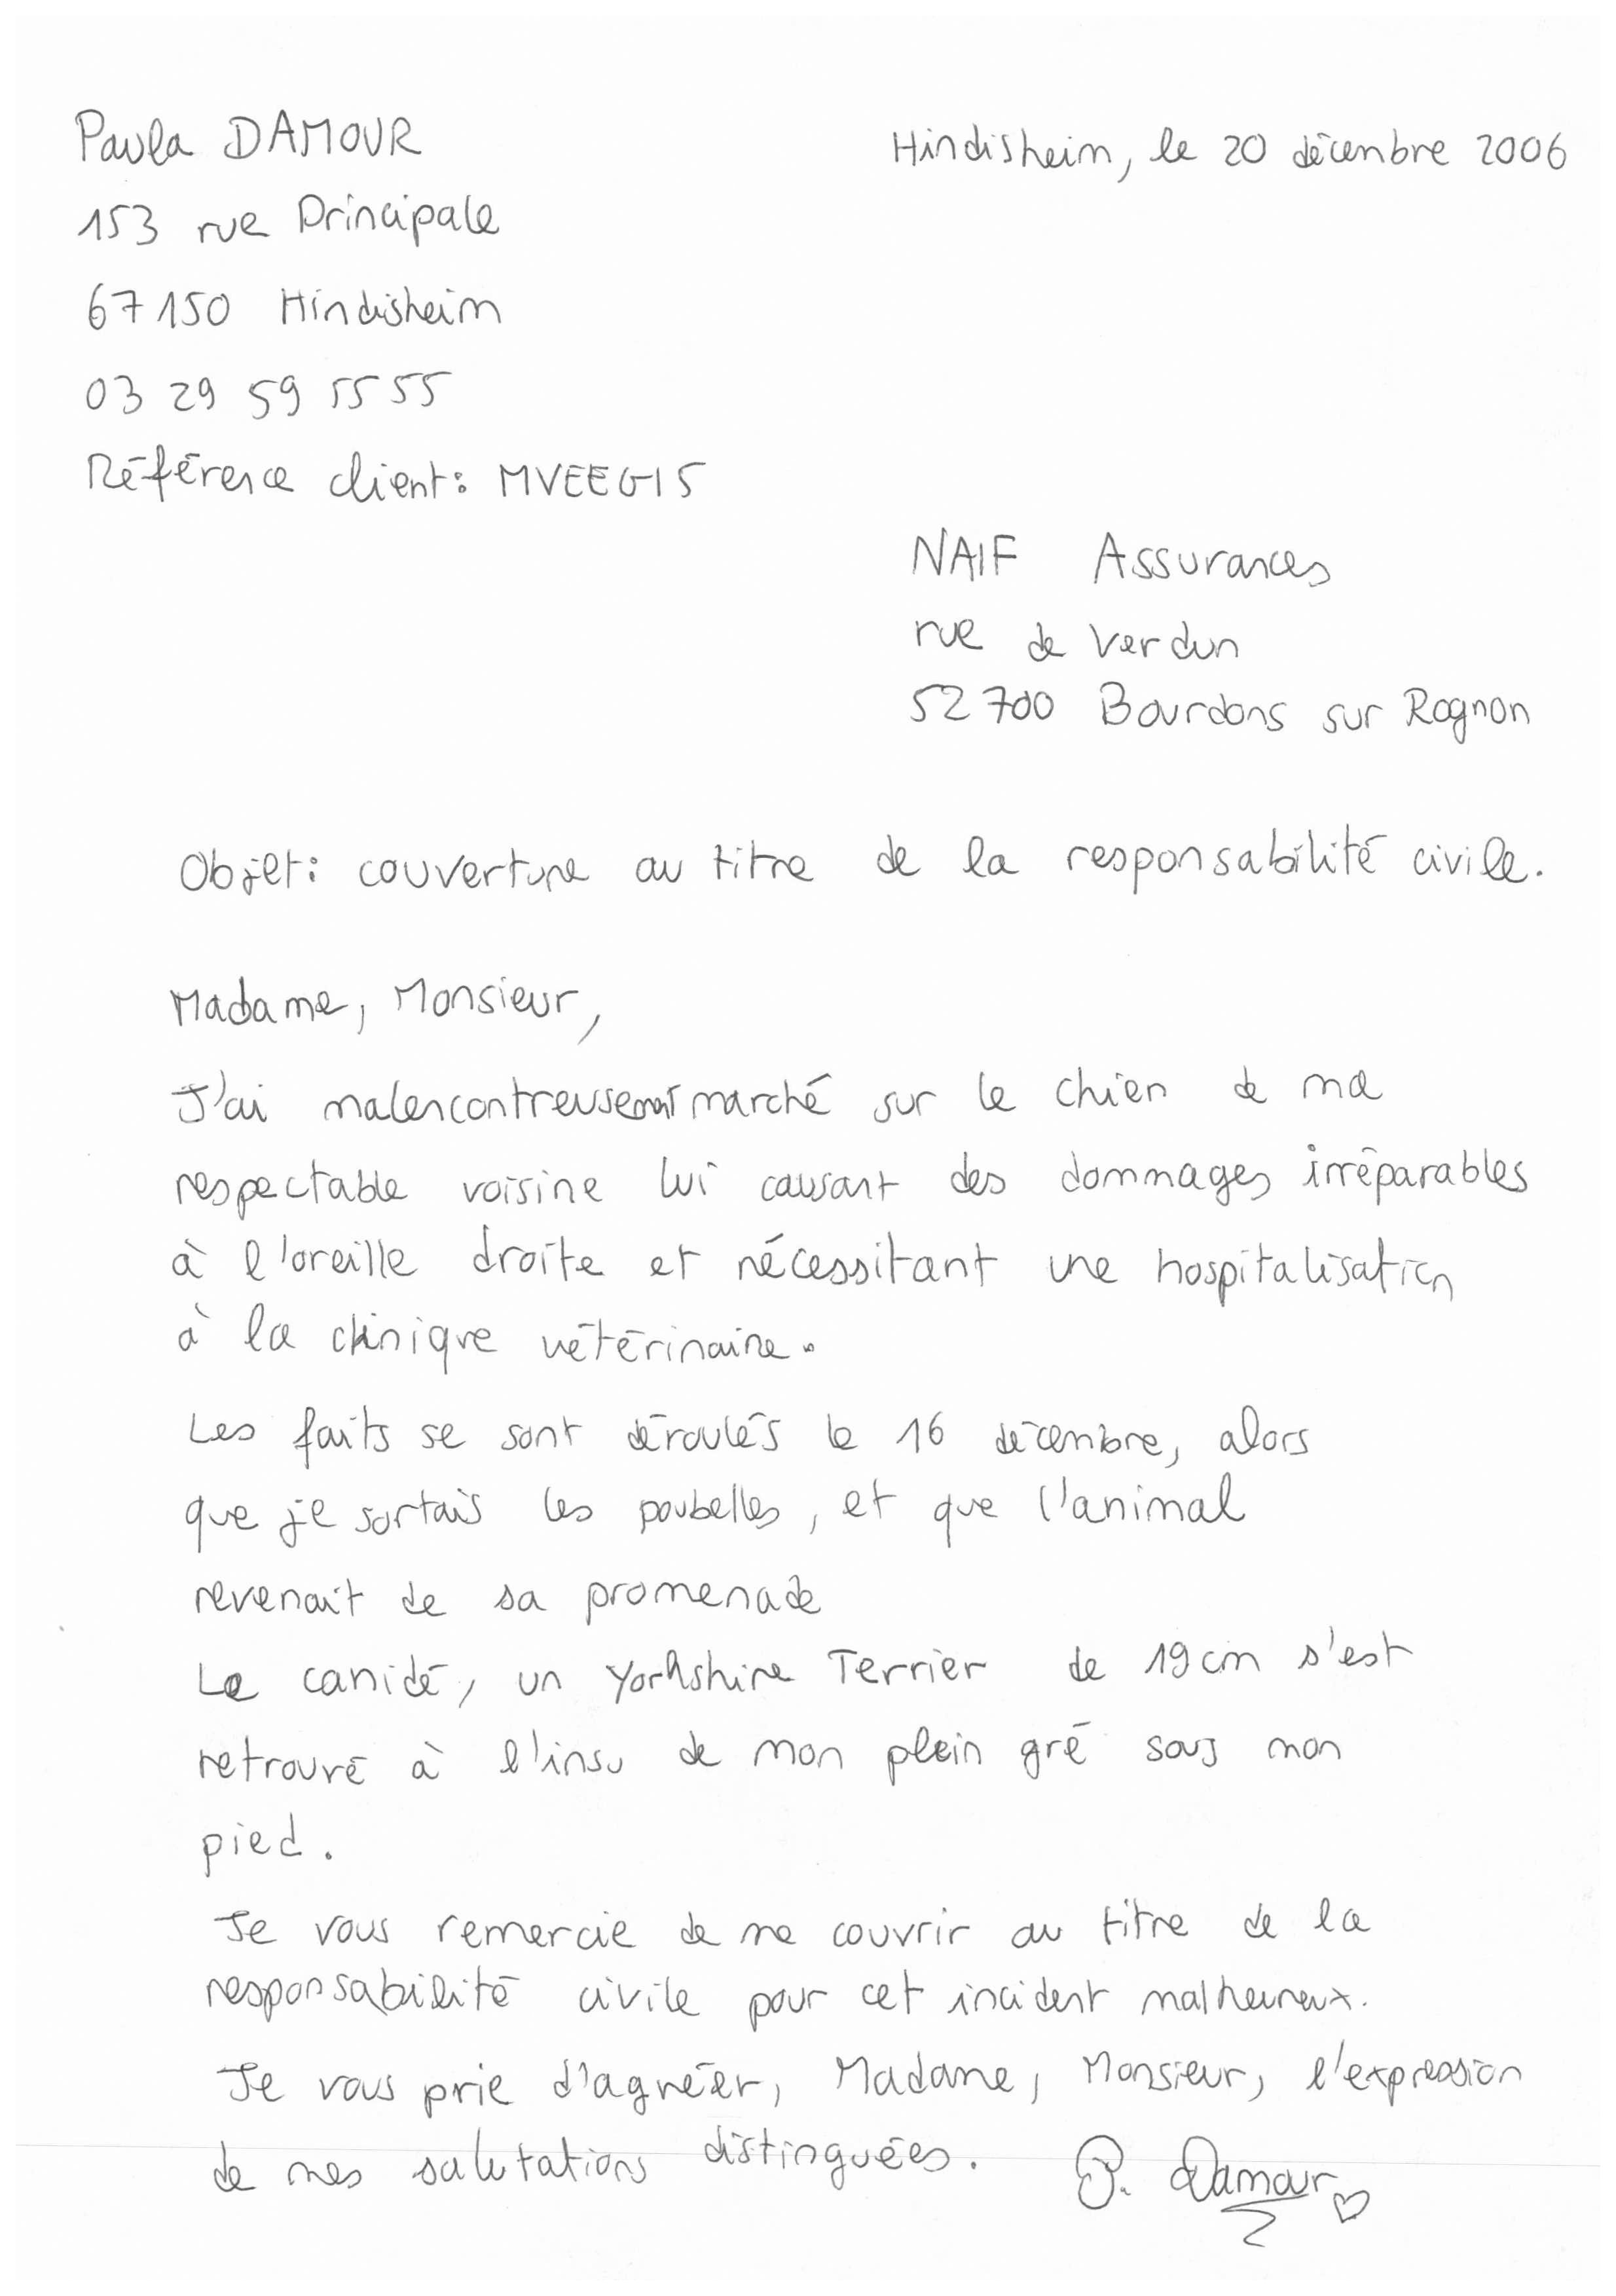 Paula DAMOUR
Hindisheim, le 20 décembre 2006
153 rue Principale
67150 Hindisheim
03 29 59 55 55
Référence client: MVEEG15
NAIF Assurances
rue de Verdun
52700 Bourdons sur Rognon
Objet: couverture au titre de la responsabilité civile.
Madame, Monsieur,
J'ai malencontreusement marché sur le chien de ma
respectable voisine lui causant des dommages irréparables
à l'oreille droite et nécessitant une hospitalisation
à la clinique vétérinaire.
Les faits se sont déroulés le 16 décembre, alors
que je sortais les poubelles, et que l'animal
revenait de sa promenade
Le canidé, un Yorkshire Terrier de 19cm s'est
retrouvé à l'insu de mon plein gré sous mon
pied.
Je vous remercie de me couvrir au titre de la
responsabilité civile pour cet incident malheureux.
Je vous prie d'agréer, Madame, Monsieur, l'expression
de mes salutations distinguées. P. Damour